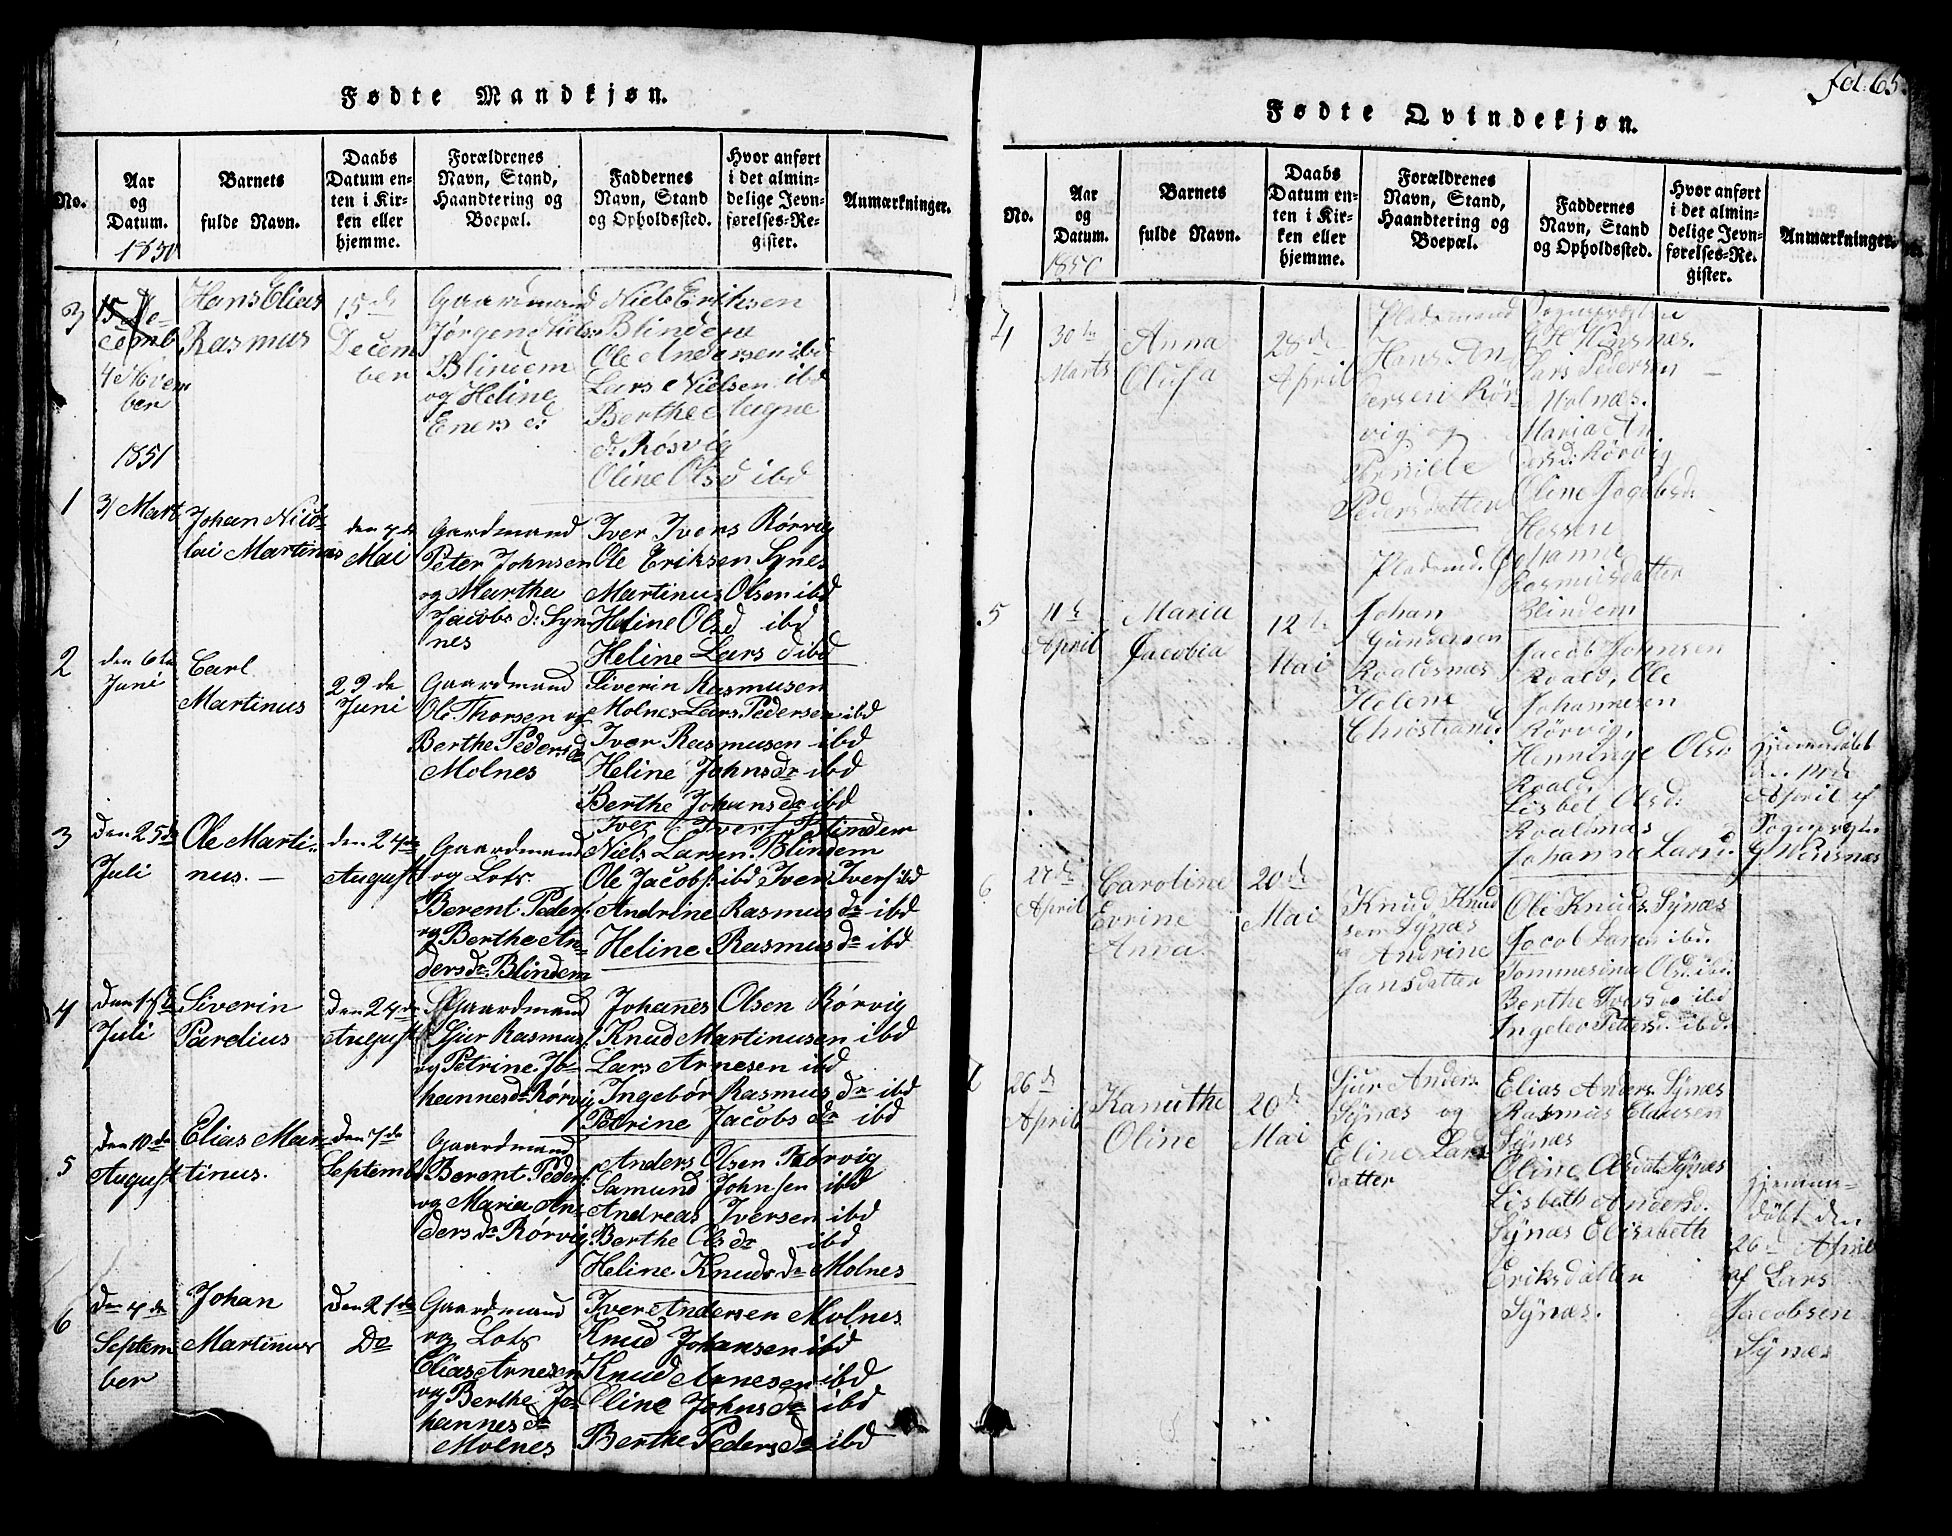 Fødte Mandkjøn.
No.
Aar
og
Datum.
1850
Barnets
fulde Navn.
Daabs
Datum en-
ten i Kir-
ken eller
hjemme.
Forældrenes
Navn, Stand,
Haandtering og
Boepæl.
Faddernes
Navn, Stand
og Opholdssted.
Hvor anført
i det almin-
delige Jevn-
førelses-Re-
gister.
Anmærkninger.
3
15 De-
cemb
4 Novem
ber
Hans Elias
Rasmus
15de
Decem
ber
Gaardmand
Jørgen Niels
Blindem
og Heline
Eners d:
Niels Eriksen
Blindem
Ole Andersen ibd
Lars Nielsen ibd
Berthe Magne
dr Røsvig
Oline Olsd ibd
1851
1
3/ Mart
Johan Nico-
lai Martinus
den 4de
Mai
Gaardmand
Peter Johnsen
og Martha
Jacobs d: Syn
nes
Iver Ivers Rørvig
Ole Eriksen Synes
Martinus Olsen ibd
Heline Olsd ibd
Heline Lars d ibd
2
den 6te
Juni
Carl
Martinus
29de
Juni
Gaardmand
Ole Thorsen og
Berthe Pedersd
Molnes
Siverin Rasmusen
Molnes Lars Pedersen ibd
Iver Rasmusen ibd
Heline Johnsdr ibd
Berthe Johansdr ibd
3
den 25de
Juli
Ole Marti-
nus. —
den 24de
August
Gaardmand
og Lots
Berent Peders:
og Berthe An-
dersdr Blindem
Iver Ivers Blindem
Niels Larsen Blindem
Ole Jacobs: ibd Iver Ivers: ibd
Andrine Rasmus dr ibd
Heline Rasmus dr ibd
4
Juli
Severin
Pardius
den 24de
August
Gaardmand
Sjur Rasmus:
og Petrine Jo-
hannesdr Rørvig
Johannes Olsen Rørvig
Knud Martinusen ibd
Lars Arnesen ibd
Ingebor Rasmus dr ibd
Petrine Jacobs dr ibd
5
den 10de
August
Elias Mar-
tinus.
den 7de
Septemb
Gaardmand
Berent Peders:
og Maria An-
dersdr Rørvig
Anders Olsen Rørvig
Samund Johnsen ibd
Andreas Iversen ibd
Berthe Olsdr ibd
Heline Knuds dr Molnes
6
den 4de
Septem
ber
Johan
Martinus
den 21de
Do
Gaardmand
og Lots
Elias Arnesen
og Berthe Jo-
hannes dr
Molnes
Iver Andersen Molnes
Knud Johansen ibd
Knud Arnesen ibd
Oline Johnsdr ibd
Berthe Pedersdr ibd
fol: 65
Fødte Qvindekjøn.
No.
Aar
og
Datum.
1850
Barnets
fulde Navn.
Daabs
Datum en-
ten i Kir-
ken eller
hjemme.
Forældrenes
Navn, Stand,
Haandtering og
Boepæl.
Faddernes
Navn, Stand
og Opholdssted.
Hvor anført
i det almin-
delige Jevn-
førelses-Re-
gister.
Anmærkninger.
4
30te
Marts
Anna
Olufa
28de
April
Pladsmand
Hans An
dersen Rør-
vig og
Pernille
Pedersdatter
Sogneprest
G H Winsnæs.
Lars Pedersen
Molnæs.
Maria An
dersd: Rørvig
Oline Jacobsdr
Hessen
Johanne
Rasmusdatter
Blindem
5
11te
April
Maria
Jacobia
12te
Mai
Pladsmd.
Johan
Gundersen
Roaldsnæs
Helene
Christiansd.
Jacob Johnsen
Roald, Ole
Johannesen
Rørvig,
Henninge Olsdr
Roald,
Lisbet Olsd:
Roaldsnæs
Johanna Larsd.
Hjemmedøbt
den 14de
April af
Sogneprest
G Winsnæs
6
27de
April
Caroline
Evrine
Anna
20de
Mai
Knud Knud
sen Synæs
og Andrine
Jansdatter
Ole Knuds. Synæs
Jacob Larsen ibd.
Tommesine Olsd: ibd.
Berthe Iversdr ibd
Ingeleo Pettersd. ibd.
26de
April
Kanuthe
Oline
20de
Mai
Sjur Anders.
Synæs og
Eline Lars
datter
Elias Anders. Synæs
Rasmus Clausen
Synæs
Oline Olsdat. Synæs
Lisbeth Andersd.
Synæs Elisabeth
Eriksdatter
Synæs.
Hjemme-
døbt den
26de April
af Lars
Jacobsen
Synæs